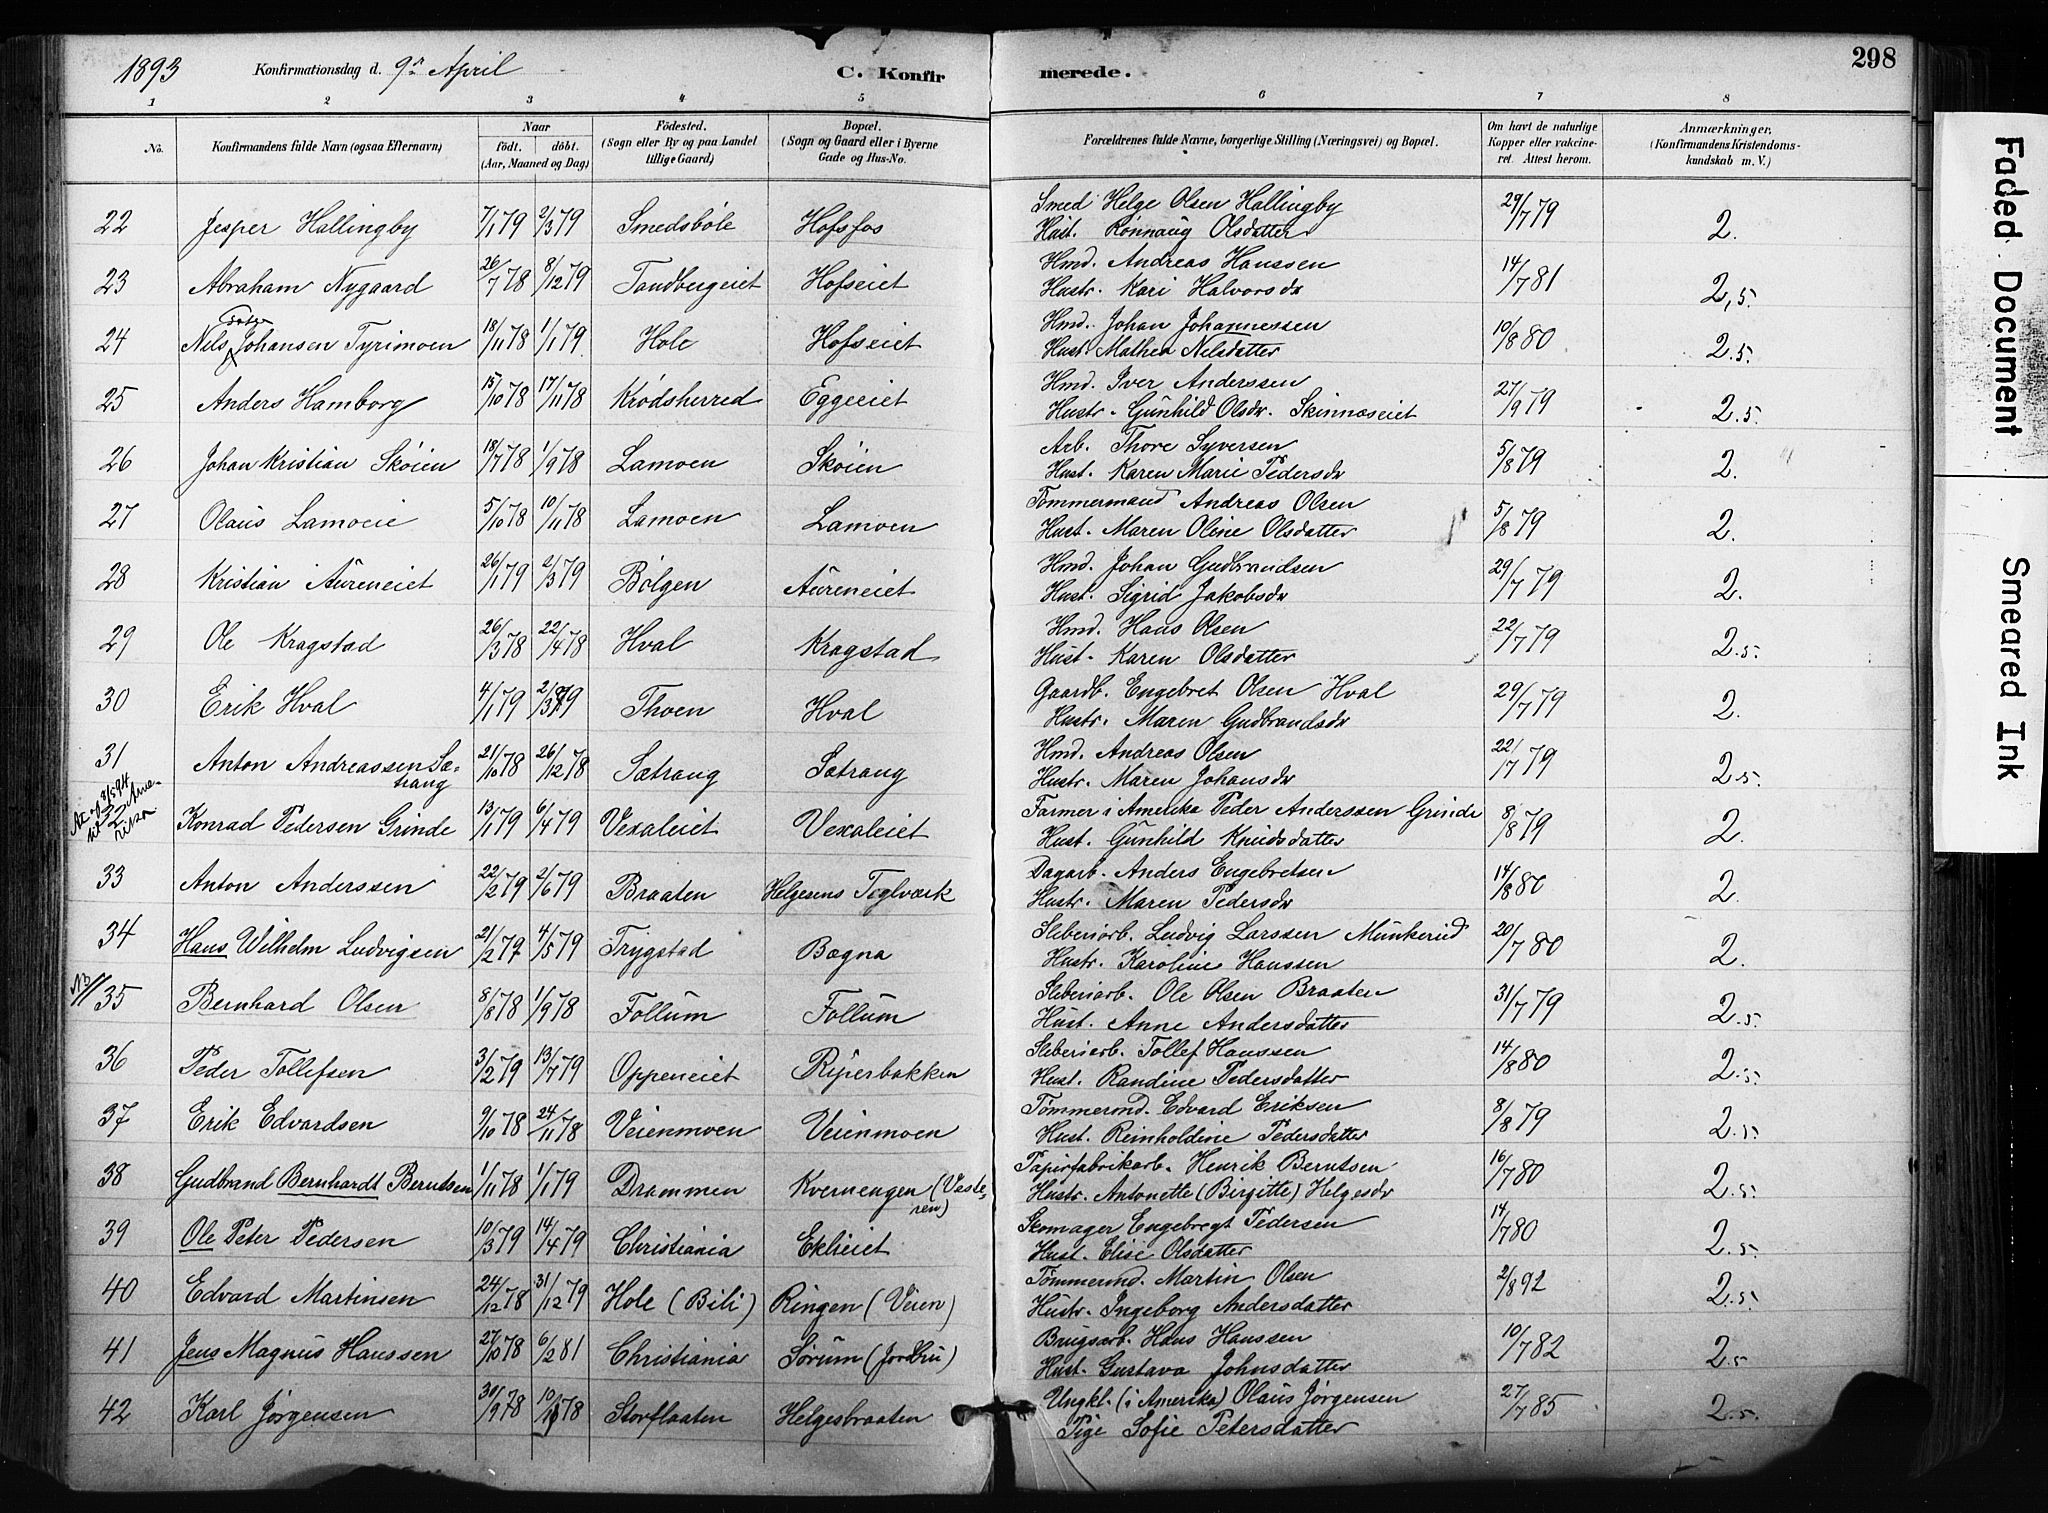 1893 Konfirmationsdag d. 9de April C. Konfirmerede. 298
1 2 3 4 5 6 7 8
No. Konfirmandens fulde Navn (ogsaa Efternavn) Naar født. døbt. (Aar, Maaned og Dag) Fødested. (Sogn eller By og paa Landet tillige Gaard) Bopæl. (Sogn og Gaard eller i Byerne Gade og Hus-No. Forældrenes fulde Navne, borgerlige Stilling (Næringsvei) og Bopæl. Om havt de naturlige Kopper eller vaccineret. Attest herom. Anmærkninger. (Konfirmandens Kristendomskundskab m. V.)
22 Jesper Hallingby 7/1 79 2/3 79 Smedsbøle Hofsfos Smed Helge Olsen Hallingby 29/7 79 2.
Hust. Rønnaug Olsdatter
23 Abraham Nygaard 26/7 78 8/12 79 Tandbergeiet Hofseiet Hmd. Andreas Hanssen 14/7 81 2,5.
Hustr. Kari Halvorsdr
24 Nils Johansen Tyrimoen 18/11 78 1/1 79. Hole Hofseiet Hmd. Johan Johannessen 10/8 80 2.5.
Hust. Mathea Nilsdatter
25 Anders Hamborg 15/10 78 17/11 78 Krødsherred Eggeeiet Hmd. Iver Anderssen 27/9 79 2.5.
Hustr. Gunhild Olsdr. Skinnaseiet
26 Johan Kristian Skøien 18/7 78 1/9 78 Lamoen Skøien Arb. Thore Syversen 5/8 79 2.
Hust. Karen Marie Pedersdr
27 Olaus Lamoeie 5/10 78 10/11 78 Lamoen Lamoen Tømmermand Andreas Olsen 5/8 79 2.
Hust. Maren Oline Olsdatter
28 Kristian Aureneiet 26/1 79 2/3 79 Bølgen Aureneiet Hmd. Johan Gudbrandsen 29/7 79 2.
Hust. Sigrid Jakobsdr
29 Ole Kragstad 26/3 78 22/4 78 Hval Kragstad Hmd. Hans Olsen 22/7 79 2.5.
Hust. Karen Olsdatter
30 Erik Hval 4/1 79 2/3 79 Thoen Hval Gaardb. Engebret Olsen Hval 29/7 79 2.
Hustr. Maren Gudbrandsdr
31 Anton Andreassen Sætrang 21/10 78 26/12 78 Sætrang Sætrang Hmd. Andreas Olsen 22/7 79 2.5.
Hustr. Maren Johansdr
32 Konrad Pedersen Grinde 13/1 79 6/4 79 Vexaleiet Vexaleiet Farmer i Amerika Peder Anderssen Grinde 8/8 79 2.
Hust. Gunhild Knudsdatter
33 Anton Anderssen 22/2 79 2/6 79 Braaten Helgesens Teglværk Dagarb. Anders Engebretsen 14/8 80 2.
Hustr. Maren Pedersdr
34 Hans Wilhelm Ludvigsen 21/2 79 4/5 79 Trygstad Bægna Sliberiarb. Ludvig Larssen Munkerud 20/7 80 2.
Hustr. Karoline Hanssen
NB 35 Bernhard Olsen 8/8 78 1/9 78 Follum Follum Sliberiarb. Ole Olsen Braaten 31/7 79 2.5.
Hust. Anne Andersdatter
36 Peder Tollefsen 3/2 79 13/7 79 Oppeneiet Riperbakken Sliberiarb. Tollef Hanssen 14/8 80 2.5.
Hust. Randine Pedersdatter
37 Erik Edvardsen 9/10 78 24/11 78 Veienmoen Veienmoen Tømmermd. Edvard Eriksen 8/8 79 2.5.
Hust. Reinholdine Pedersdatter
38 Gudbrand Bernhardt Berntsen 1/11 78 1/1 79 Drammen Kvernengen (Vesteren) Papirfabrikarb. Henrik Berntsen 16/7 80 2.5.
Hustr. Antonette (Birgitte) Helgesdr
39 Ole Peter Pedersen 10/3 79 14/4 79 Christiania Eklieiet Skomager Engebregt Pedersen 14/7 80 2.5.
Hust. Elise Olsdatter
40 Edvard Martinsen 24/12 78 31/12 79 Hole (Bili) Ringen (Veien) Tømmermd. Martin Olsen 2/8 92 2.5.
Hustr. Ingeborg Andersdatter
41 Jens Magnus Hanssen 27/10 78 6/2 81 Christiania Sørum (Jordbru) Brugsarb. Hans Hanssen 10/7 82 2.5.
Hust. Gustava Johnsdatter
42 Karl Jørgensen 30/9 78 10/11 78 Storflaaten Helgesbraaten Ungkl. (i Amerika) Olaus Jørgensen 27/7 85 2.5.
Pige Sofie Petersdatter
Faded Document
Smeared Ink